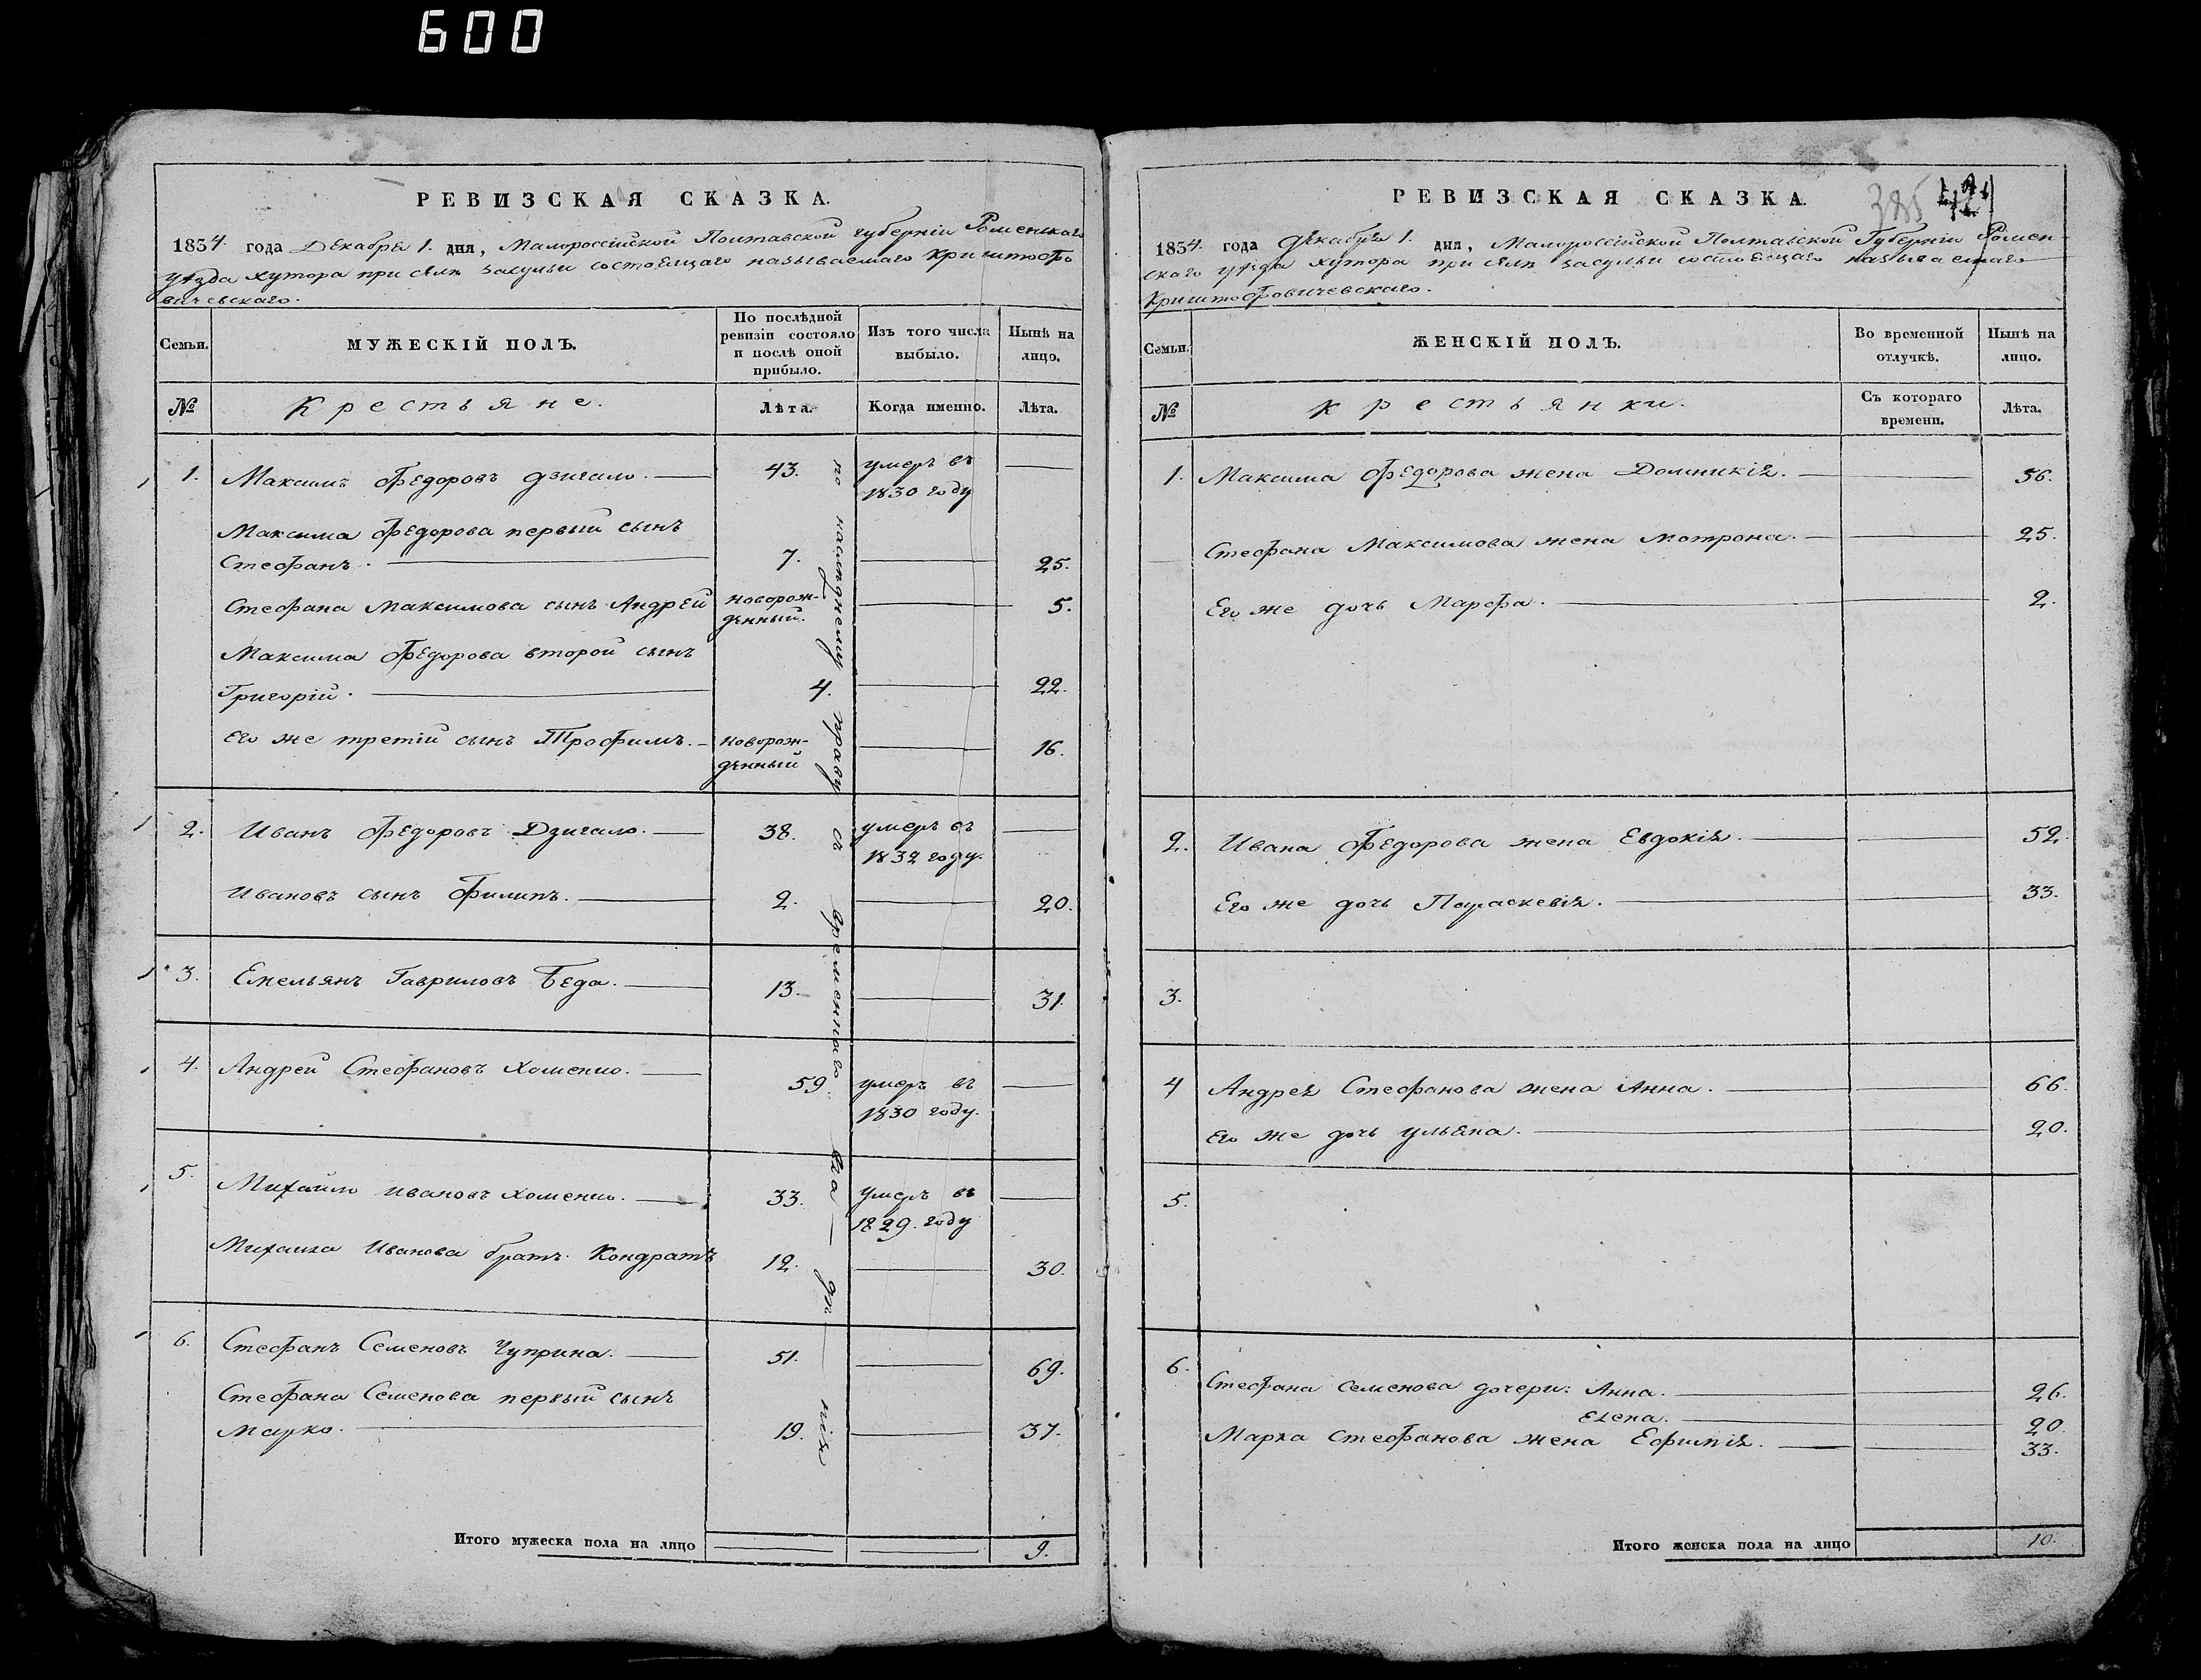 600
РЕВИЗСКАЯ СКАЗКА.
1834. года Декабря 1. дня, Малороссійской Полтавской губерніи Роменскаго
уѣзда хутора при селѣ Засульи состоящаго называемаго Криштофо
вичевскаго.
Семьи.
МУЖЕСКІЙ ПОЛЪ.
По послѣдной
ревизіи состояло
и послѣ оной
прибыло.
Изъ того числа
выбыло.
Нынѣ на
лицо.
№
Крестьяне.
Лѣта.
Когда именно.
Лѣта.
1. Максимъ Федоровъ Дзигало. 43. умеръ въ
1830 году
Максима Федорова первый сынъ
Стефанъ. 7. 25.
Стефана Максимова сынъ Андрей новорож-
денный. 5.
Максима Федорова второй сынъ
Григорій. 4. 22.
Его же третій сынъ Трофимъ. новорож-
денный 16.
2. Иванъ Федоровъ Дзигало. 38. умеръ въ
1832 году.
Ивановъ сынъ Филипъ. 2. 20.
3. Емельянъ Гавриловъ Беда. 13. 31.
4. Андрей Стефановъ Хоменко. 59. умеръ въ
1830 году.
5. Михайло Ивановъ Хоменко. 33. умеръ въ
1829. году
Михайла Иванова братъ Кондратъ 12. 30.
6. Стефанъ Семеновъ Чуприна. 51. 69.
Стефана Семенова первый сынъ
Марко. 19. 37.
по наслѣднему праву съ временнаго
Итого мужеска пола на лицо 9.
РЕВИЗСКАЯ СКАЗКА.
385
1834. года Декабря 1. дня, Малороссійской Полтавской Губерніи Ромен-
скаго уѣзда хутора при селѣ Засульи состоящаго называемаго
Криштофовичевскаго.
Семьи.
ЖЕНСКІЙ ПОЛЪ.
Во временной
отлучкѣ.
Нынѣ на
лицо.
№
Крестьянки.
Съ котораго
времени.
Лѣта.
1. Максима Федорова жена Домникія. 56.
Стефана Максимова жена Мотрона. 25.
Его же дочь Марфа. 2.
2. Ивана Федорова жена Евдокія. 52.
Его же дочь Параскевія. 33.
3.
4 Андрея Стефанова жена Анна. 66.
Его же дочь Ульяна. 20.
5.
6. Стефана Семенова дочери: Анна. 26.
Елена. 20.
Марка Стефанова жена Ефимія. 33.
Итого женска пола на лицо 10.